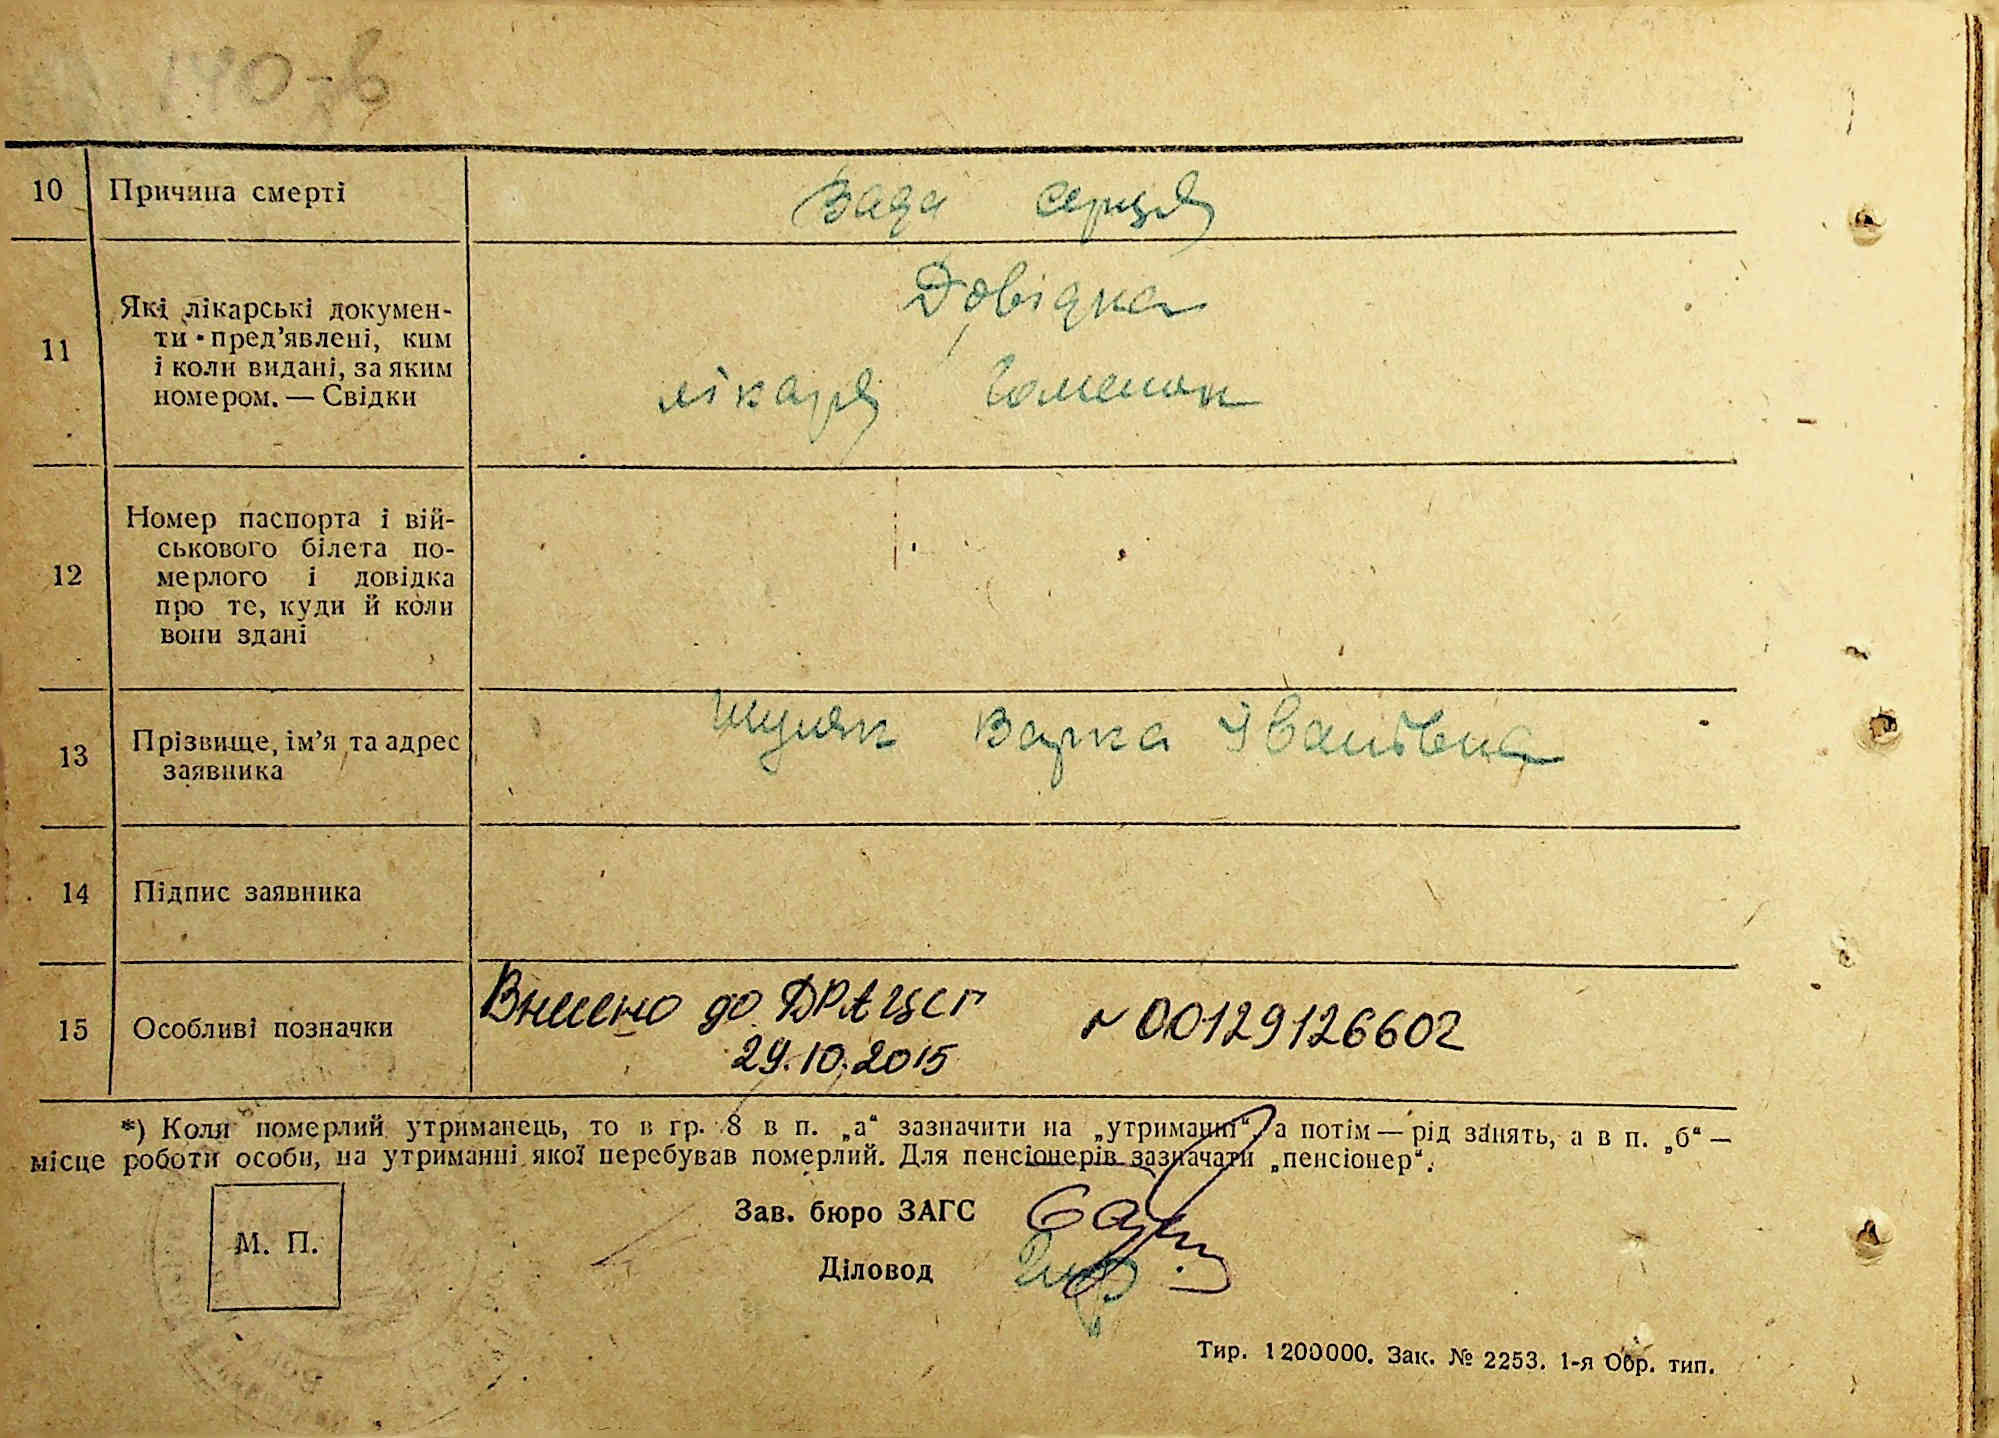 140-б
10 Причина смерті Вада серця
11 Які лікарські докумен-
ти пред’явлені, ким
і коли видані, за яким
номером. — Свідки
Довідка
лікаря
12 Номер паспорта і вій-
ськового білета по-
мерлого і довідка
про те, куди й коли
вони здані
13 Прізвище, ім’я та адрес
заявника
Шуляк Варка Іванівна
14 Підпис заявника
15 Особливі позначки
Внесено до ДРАЦСГ № 00129126602
29.10.2015
*) Коли померлий утриманець, то в гр. 8 в п. „а“ зазначити на „утриманні“, а потім — рід занять, а в п. „б“ —
місце роботи особи, на утриманні якої перебував померлий. Для пенсіонерів зазначати „пенсіонер“.
М. П.
Зав. бюро ЗАГС
Діловод
Тир. 1200000. Зак. № 2253. 1-я Обр. тип.